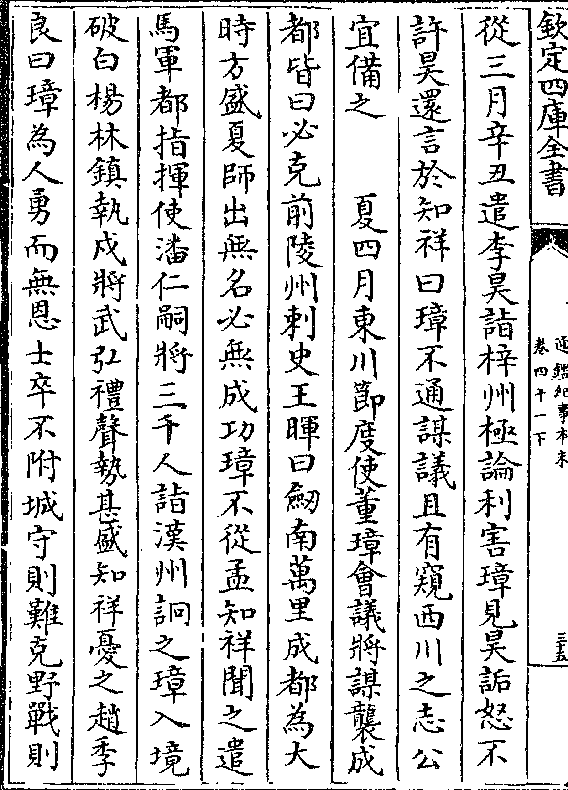 欽定四庫全書
通鑑紀事本末
卷四十一下
三十五
從三月辛丑遣李昊詣梓州極論利害璋見昊詬怒不
許昊還言於知祥曰璋不通謀議且有窺西川之志公
宜備之　夏四月東川節度使董璋會議將謀襲成
都皆曰必克前陵州刺史王暉曰劒南萬里成都為大
時方盛夏師出無名必無成功璋不從孟知祥聞之遣
馬軍都指揮使潘仁嗣將三千人詣漢州詗之璋入境
破白楊林鎮執戍將武弘禮聲勢甚盛知祥憂之趙季
良曰璋為人勇而無恩士卒不附城守則難克野戰則